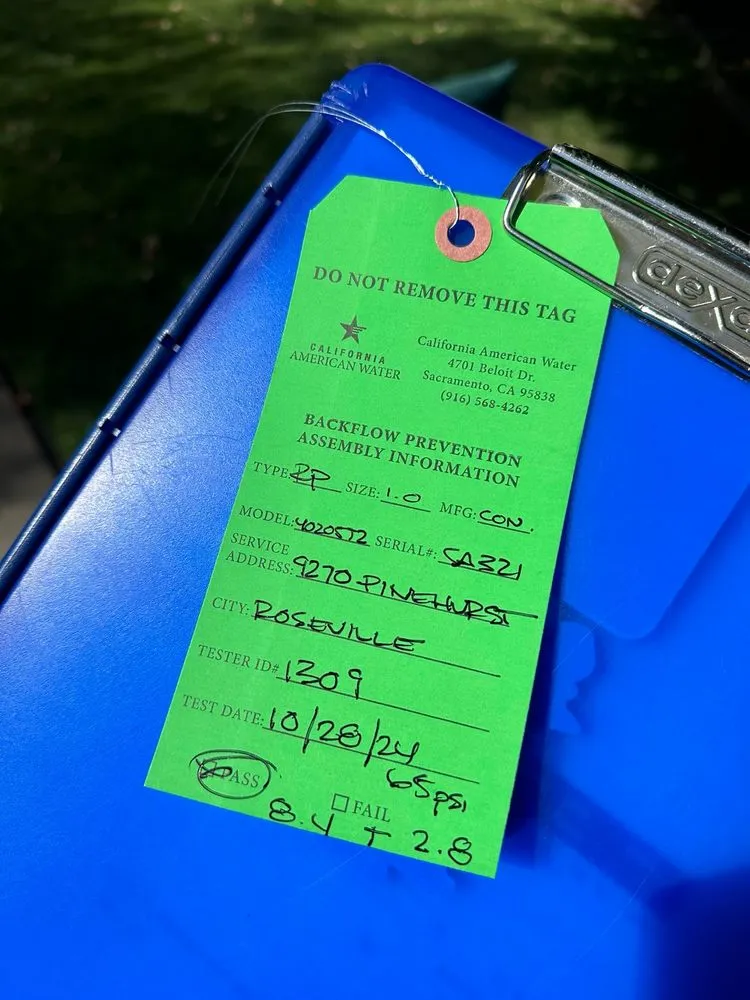 dexa
DO NOT REMOVE THIS TAG
CALIFORNIA
AMERICAN WATER
California American Water
4701 Beloit Dr.
Sacramento, CA 95838
(916) 568-4262
BACKFLOW PREVENTION
ASSEMBLY INFORMATION
TYPE: RP SIZE: 1.0 MFG: CON.
MODEL: 4020ST2 SERIAL#: SA321
SERVICE
ADDRESS: 9270 PINEHURST
CITY: ROSEVILLE
TESTER ID# 1309
TEST DATE: 10/28/24
65psi
PASS
FAIL
8.4 T 2.8